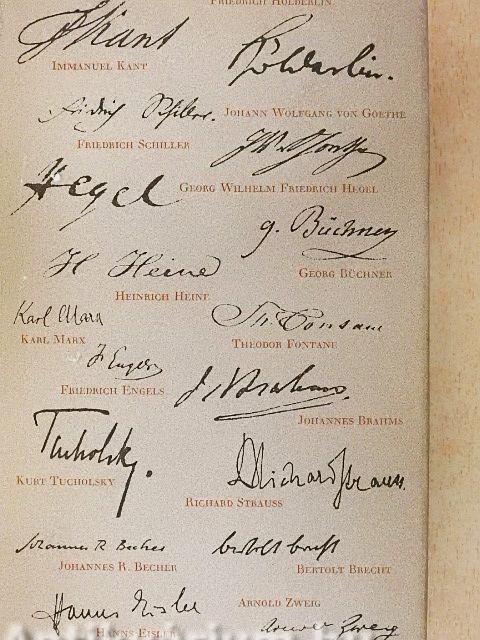 FRIEDRICH HÖLDERLIN
Kant
IMMANUEL KANT
Hölderlin.
Fridrich Schiller.
JOHANN WOLFGANG VON GOETHE
FRIEDRICH SCHILLER
JWvGoethe
Hegel
GEORG WILHELM FRIEDRICH HEGEL
G. Büchner
GEORG BÜCHNER
H Heine
HEINRICH HEINE
Karl Marx
KARL MARX
Th. Fontane
THEODOR FONTANE
F Engels
FRIEDRICH ENGELS
J. Brahms.
JOHANNES BRAHMS
Tucholsky.
KURT TUCHOLSKY
Richard Strauss
RICHARD STRAUSS
Johannes R Becher
JOHANNES R. BECHER
bertolt brecht
BERTOLT BRECHT
Hanns Eisler
HANNS EISLER
ARNOLD ZWEIG
Arnold Zweig